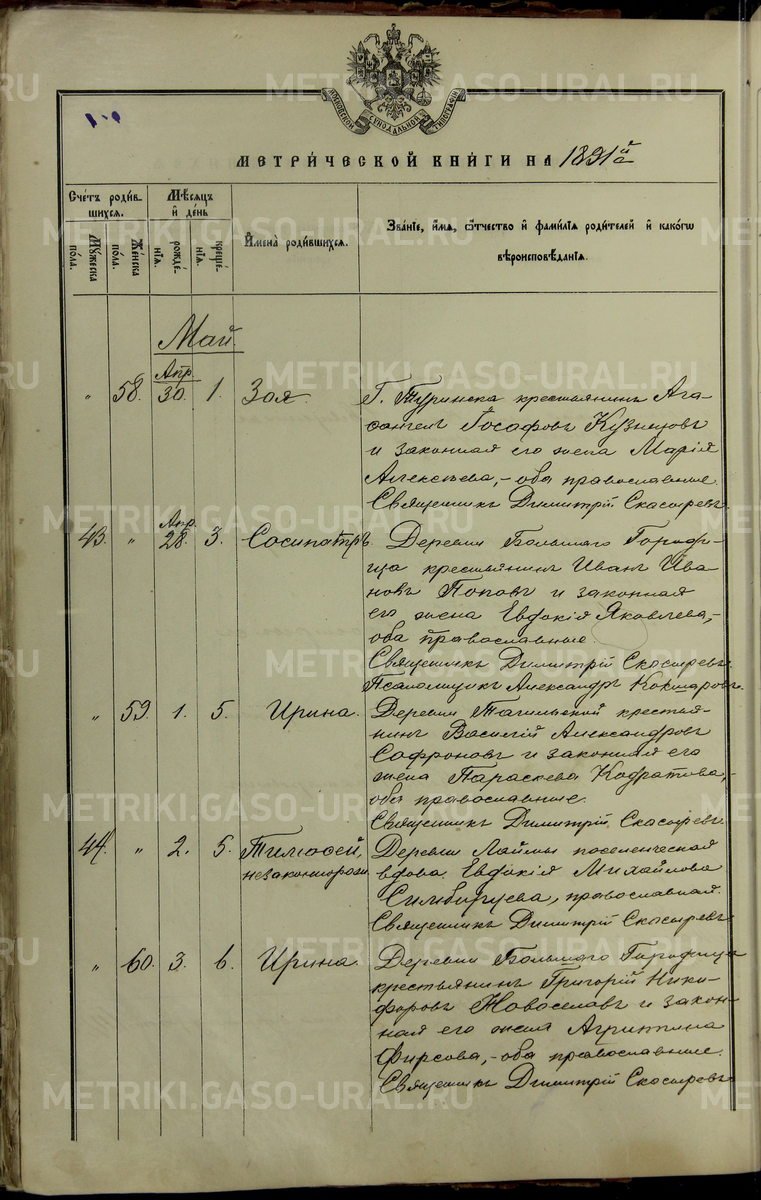 МОСКОВСКОЙ СѴНОДАЛЬНОЙ ТИПОГРАФІИ
МЕТРИ́ЧЕСКОЙ КНИ́ГИ НА 1891й
Сче́тъ роди́в-
шихся.
Мꙋ́жеска
по́ла.
Же́нска
по́ла.
Мѣ́сяцъ
и҆ де́нь
рожде́-
нїѧ.
креще́-
нїѧ.
И҆мена̀ роди́вшихся.
Зва́нїе, и҆́мѧ, ѻ҆́тчество и҆ фами́лїѧ роди́телей и҆ како́гѡ
вѣроисповѣ́данїѧ.
Май.
" 58. Апр. 30. 1. Зоя. Г. Туринска крестьянинъ Ага-
ѳангелъ Іосафовъ Кузнецовъ
и законная его жена Марія
Алексѣева, – оба православные.
Священникъ Димитрій Скосыревъ.
43. " Апр. 28. 3. Сосипатръ. Деревни Большаго Городи-
ща крестьянинъ Иванъ Ива-
новъ Поповъ и законная
его жена Евдокія Яковлева, –
оба православные
Священникъ Димитрій Скосыревъ.
Псаломщикъ Александръ Кокшаровъ.
" 59. 1. 5. Ирина. Деревни Тагильской крестья-
нинъ Василій Александровъ
Софроновъ и законная его
жена Параскева Кодратова, –
оба православные.
Священникъ Димитрій Скосыревъ.
44. " 2. 5. Тимоѳей, незаконнорожд. Деревни Лаймы поселенческая
вдова Евдокія Михайлова
православная.
Священникъ Димитрій Скосыревъ
" 60. 3. 6. Ирина. Деревни Большаго Городища
крестьянинъ Григорій Ники-
форовъ Новоселовъ и закон-
ная его жена Агрипина
Фирсова, – оба православные.
Священникъ Димитрій Скосыревъ
METRIKI.GASO-URAL.RU